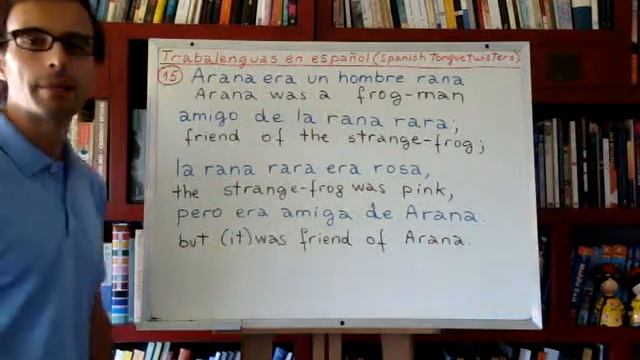 Trabalenguas en español (Spanish Tongue twisters)
15 Arana era un hombre rana
Arana was a frog-man
amigo de la rana rara;
friend of the strange-frog;
la rana rara era rosa,
the strange-frog was pink,
pero era amiga de Arana.
but (it) was friend of Arana.